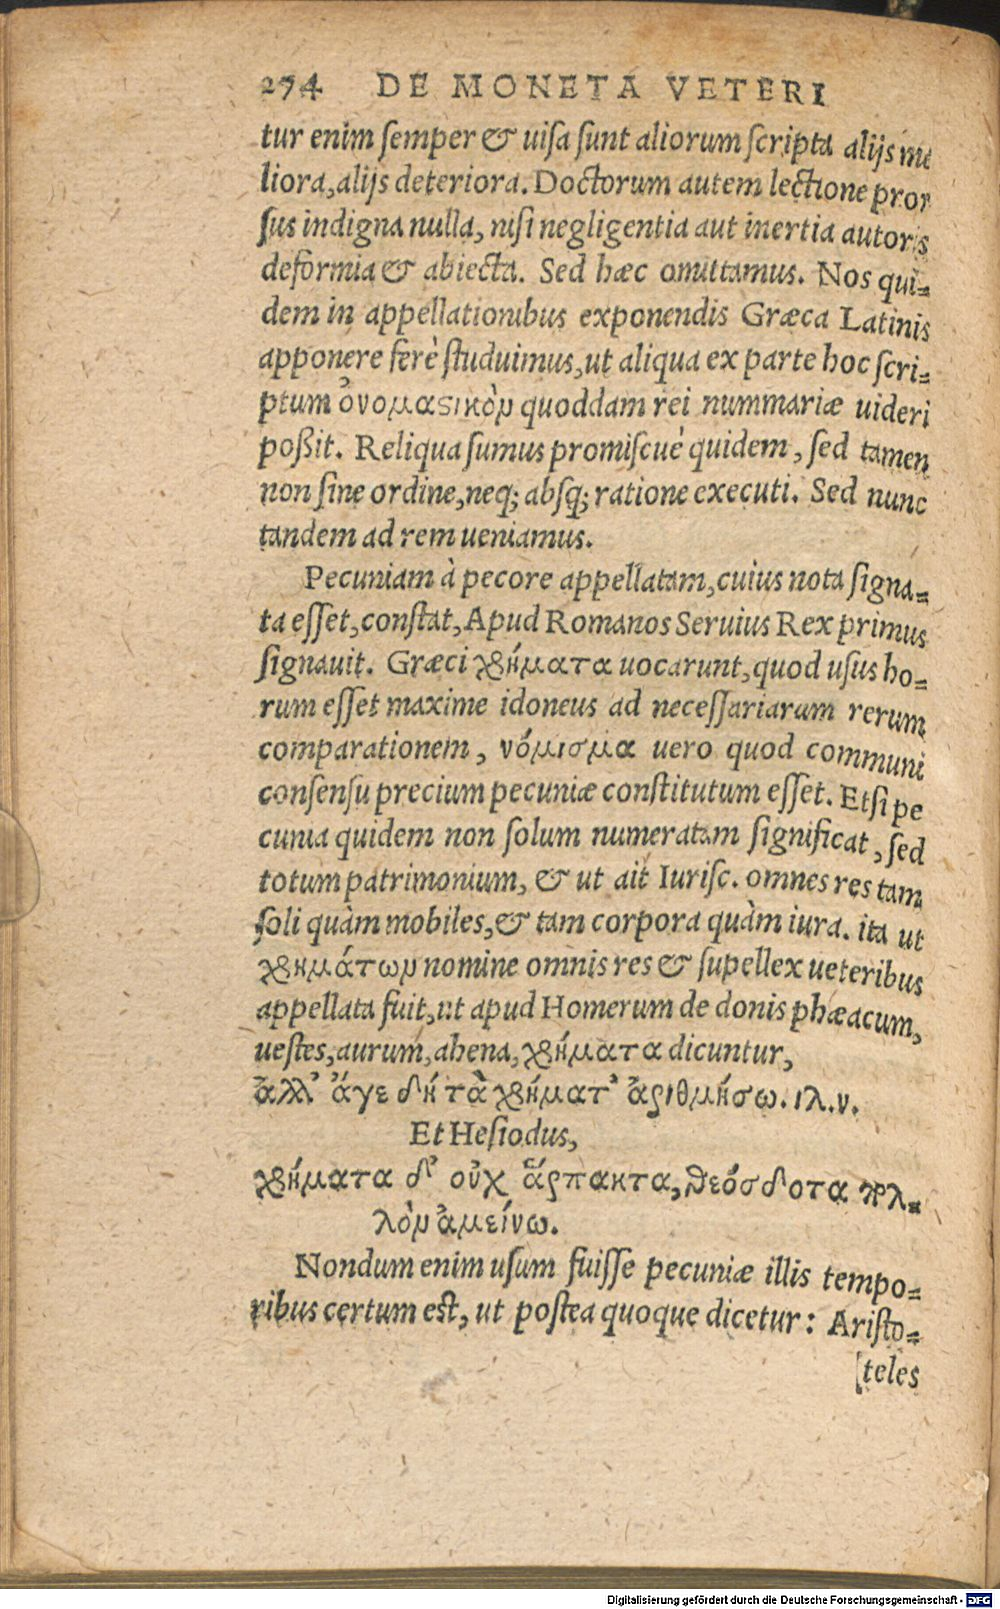 274 DE MONETA VETERI
tur enim semper & uisa sunt aliorum scripta alijs me
liora, alijs deteriora. Doctorum autem lectione pror
sus indigna nulla, nisi negligentia aut inertia autoris
deformia & abiecta. Sed hæc omittamus. Nos qui=
dem in appellationibus exponendis Græca Latinis
apponere ferè studuimus, ut aliqua ex parte hoc scri=
ptum ὀνομαϛικὸν quoddam rei nummariæ uideri
poßit. Reliqua sumus promiscuè quidem, sed tamen
non sine ordine, neq; absq; ratione executi. Sed nunc
tandem ad rem ueniamus.
Pecuniam à pecore appellatam, cuius nota signa=
ta esset, constat, Apud Romanos Seruius Rex primus
signauit. Græci χρήματα uocarunt, quod usus ho=
rum esset maxime idoneus ad necessariarum rerum
comparationem, νόμισμα uero quod communi
consensu precium pecuniæ constitutum esset. Etsi pe
cunia quidem non solum numeratam significat, sed
totum patrimonium, & ut ait Iurisc. omnes res tam
soli quàm mobiles, & tam corpora quàm iura. ita ut
χρημάτων nomine omnis res & supellex ueteribus
appellata fuit, ut apud Homerum de donis phæacum,
uestes, aurum, ahena, χρήματα dicuntur,
ἀλλ’ ἄγε δή τὰ χρήματ’ ἀριθμήσω. ιλ. ν.
Et Hesiodus,
χρήματα δ’ οὐχ ἅρπακτα, θεόσδοτα πολ=
λὸν ἀμείνω.
Nondum enim usum fuisse pecuniæ illis tempo=
ribus certum est, ut postea quoque dicetur: Aristo=
[teles
Digitalisierung gefördert durch die Deutsche Forschungsgemeinschaft - DFG